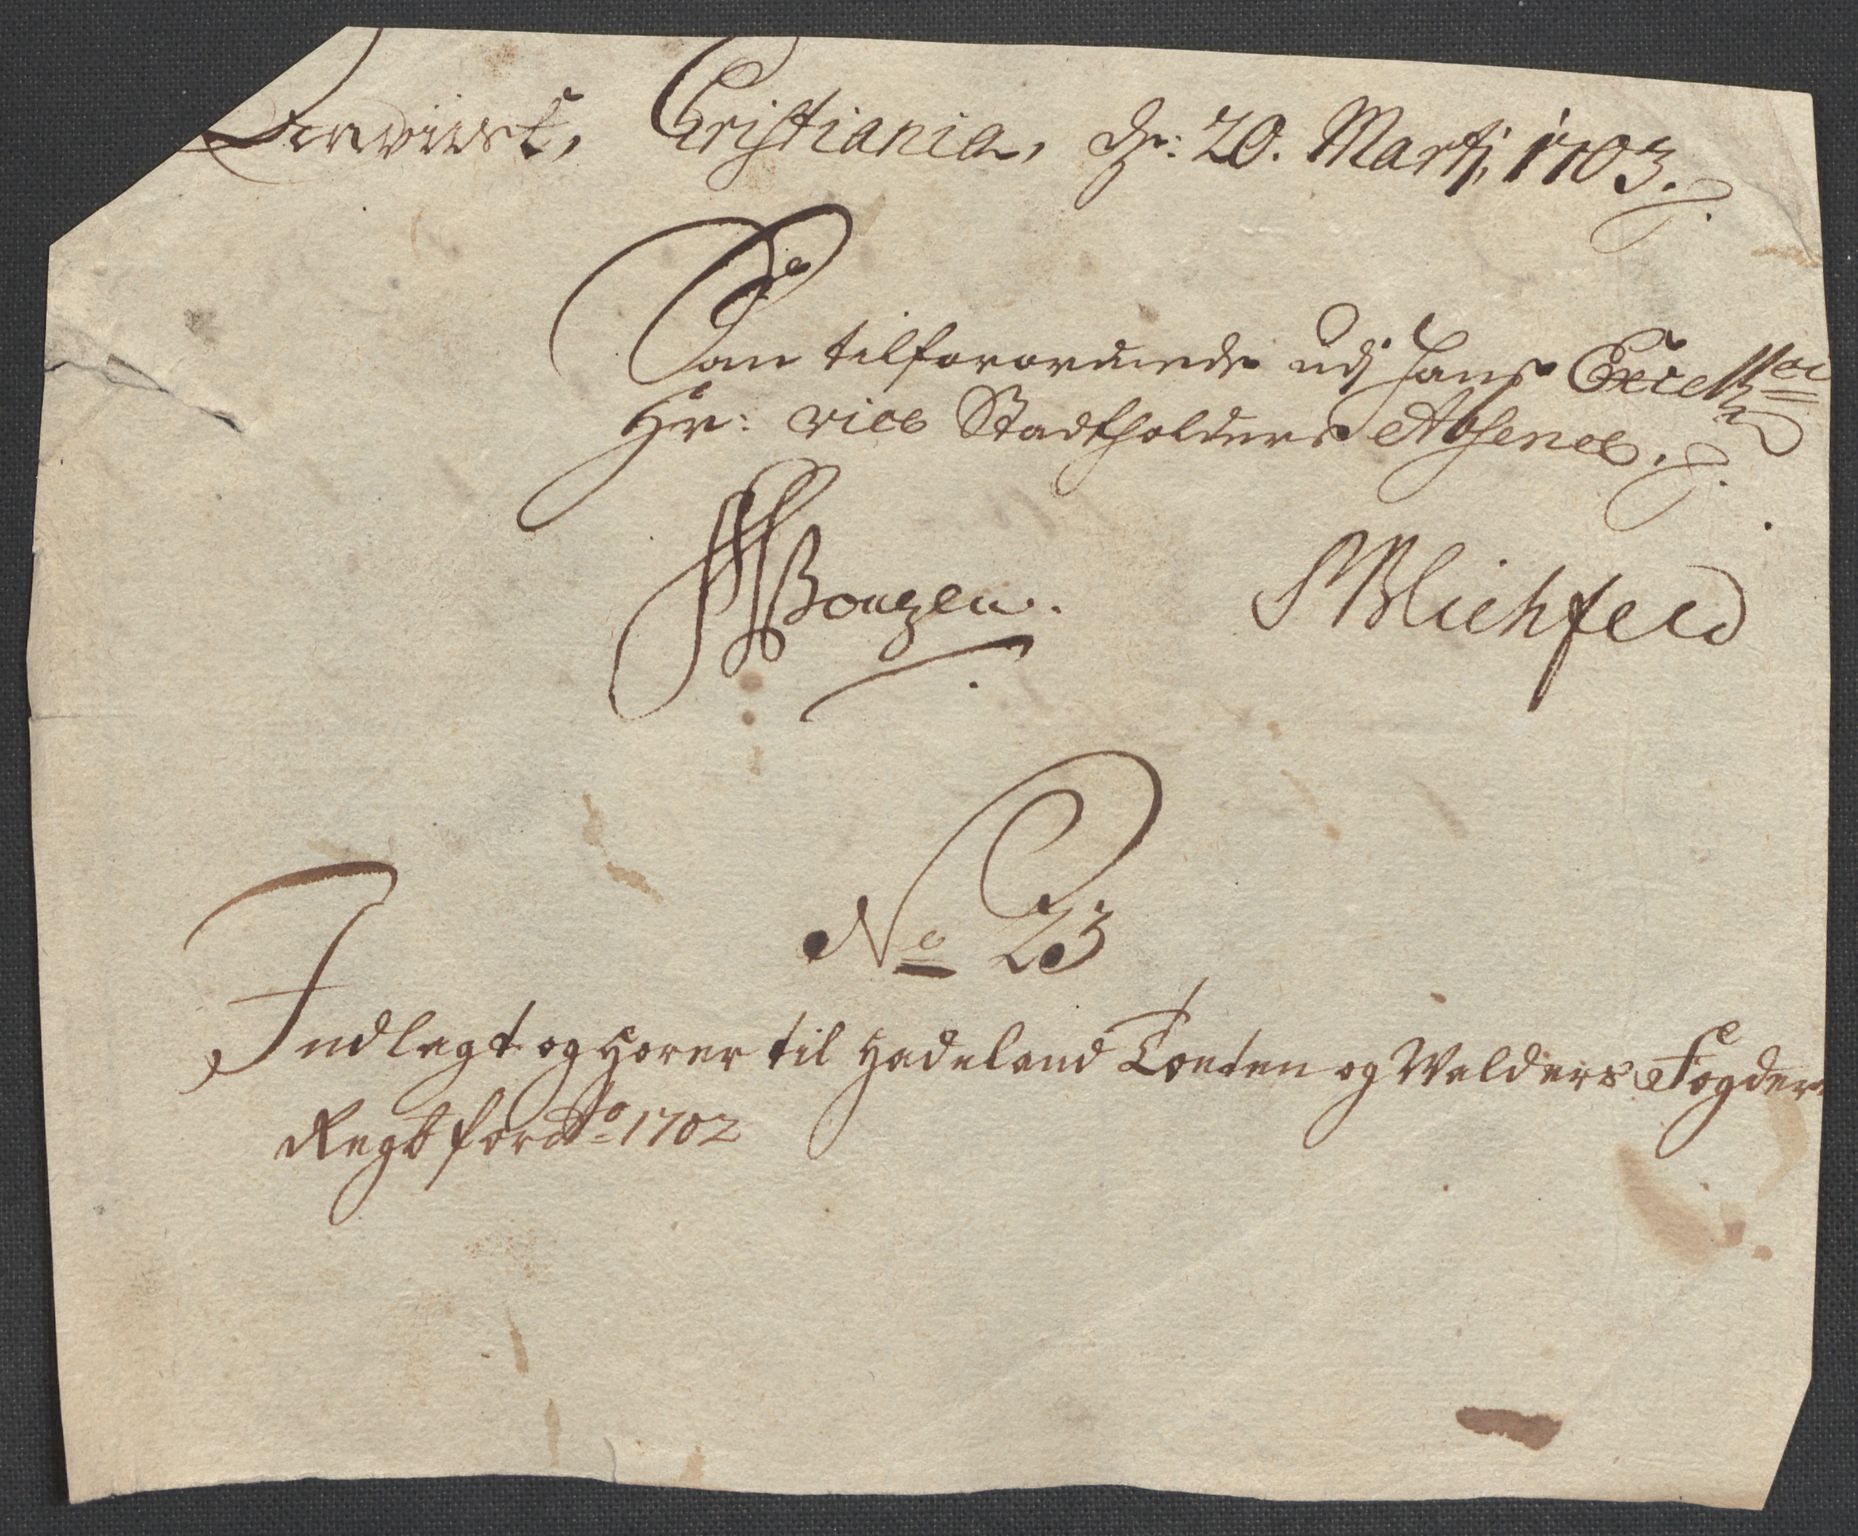 Christiania, dn: 20. Martj, 1703.
Som tilforordnede udj hans Excell:ce
Hr: vice Stadtholders Absence.
Bonzen.
MBlichfeld
No 23
Indlegt og Hører til Hadeland Toeten og Walders Fogderi
Regb for Ao 1702